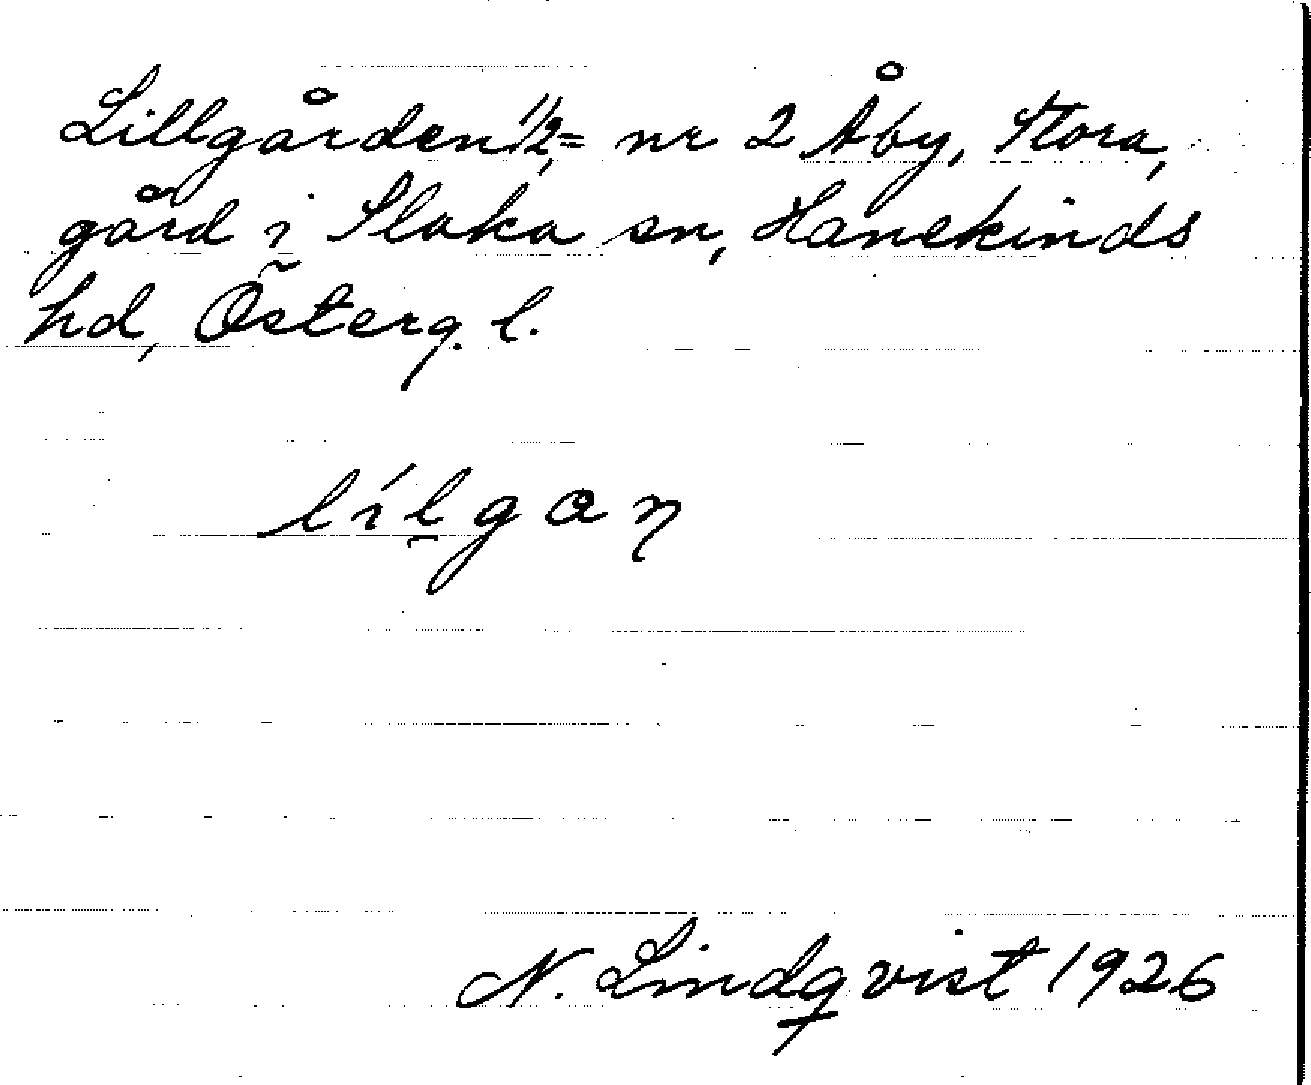 Lillgården 1/2, = nr 2 Åby, Stora,
gård i Slaka sn, Hanekinds
hd, Österg. l.
lílgaɳ
N. Lindqvist 1926